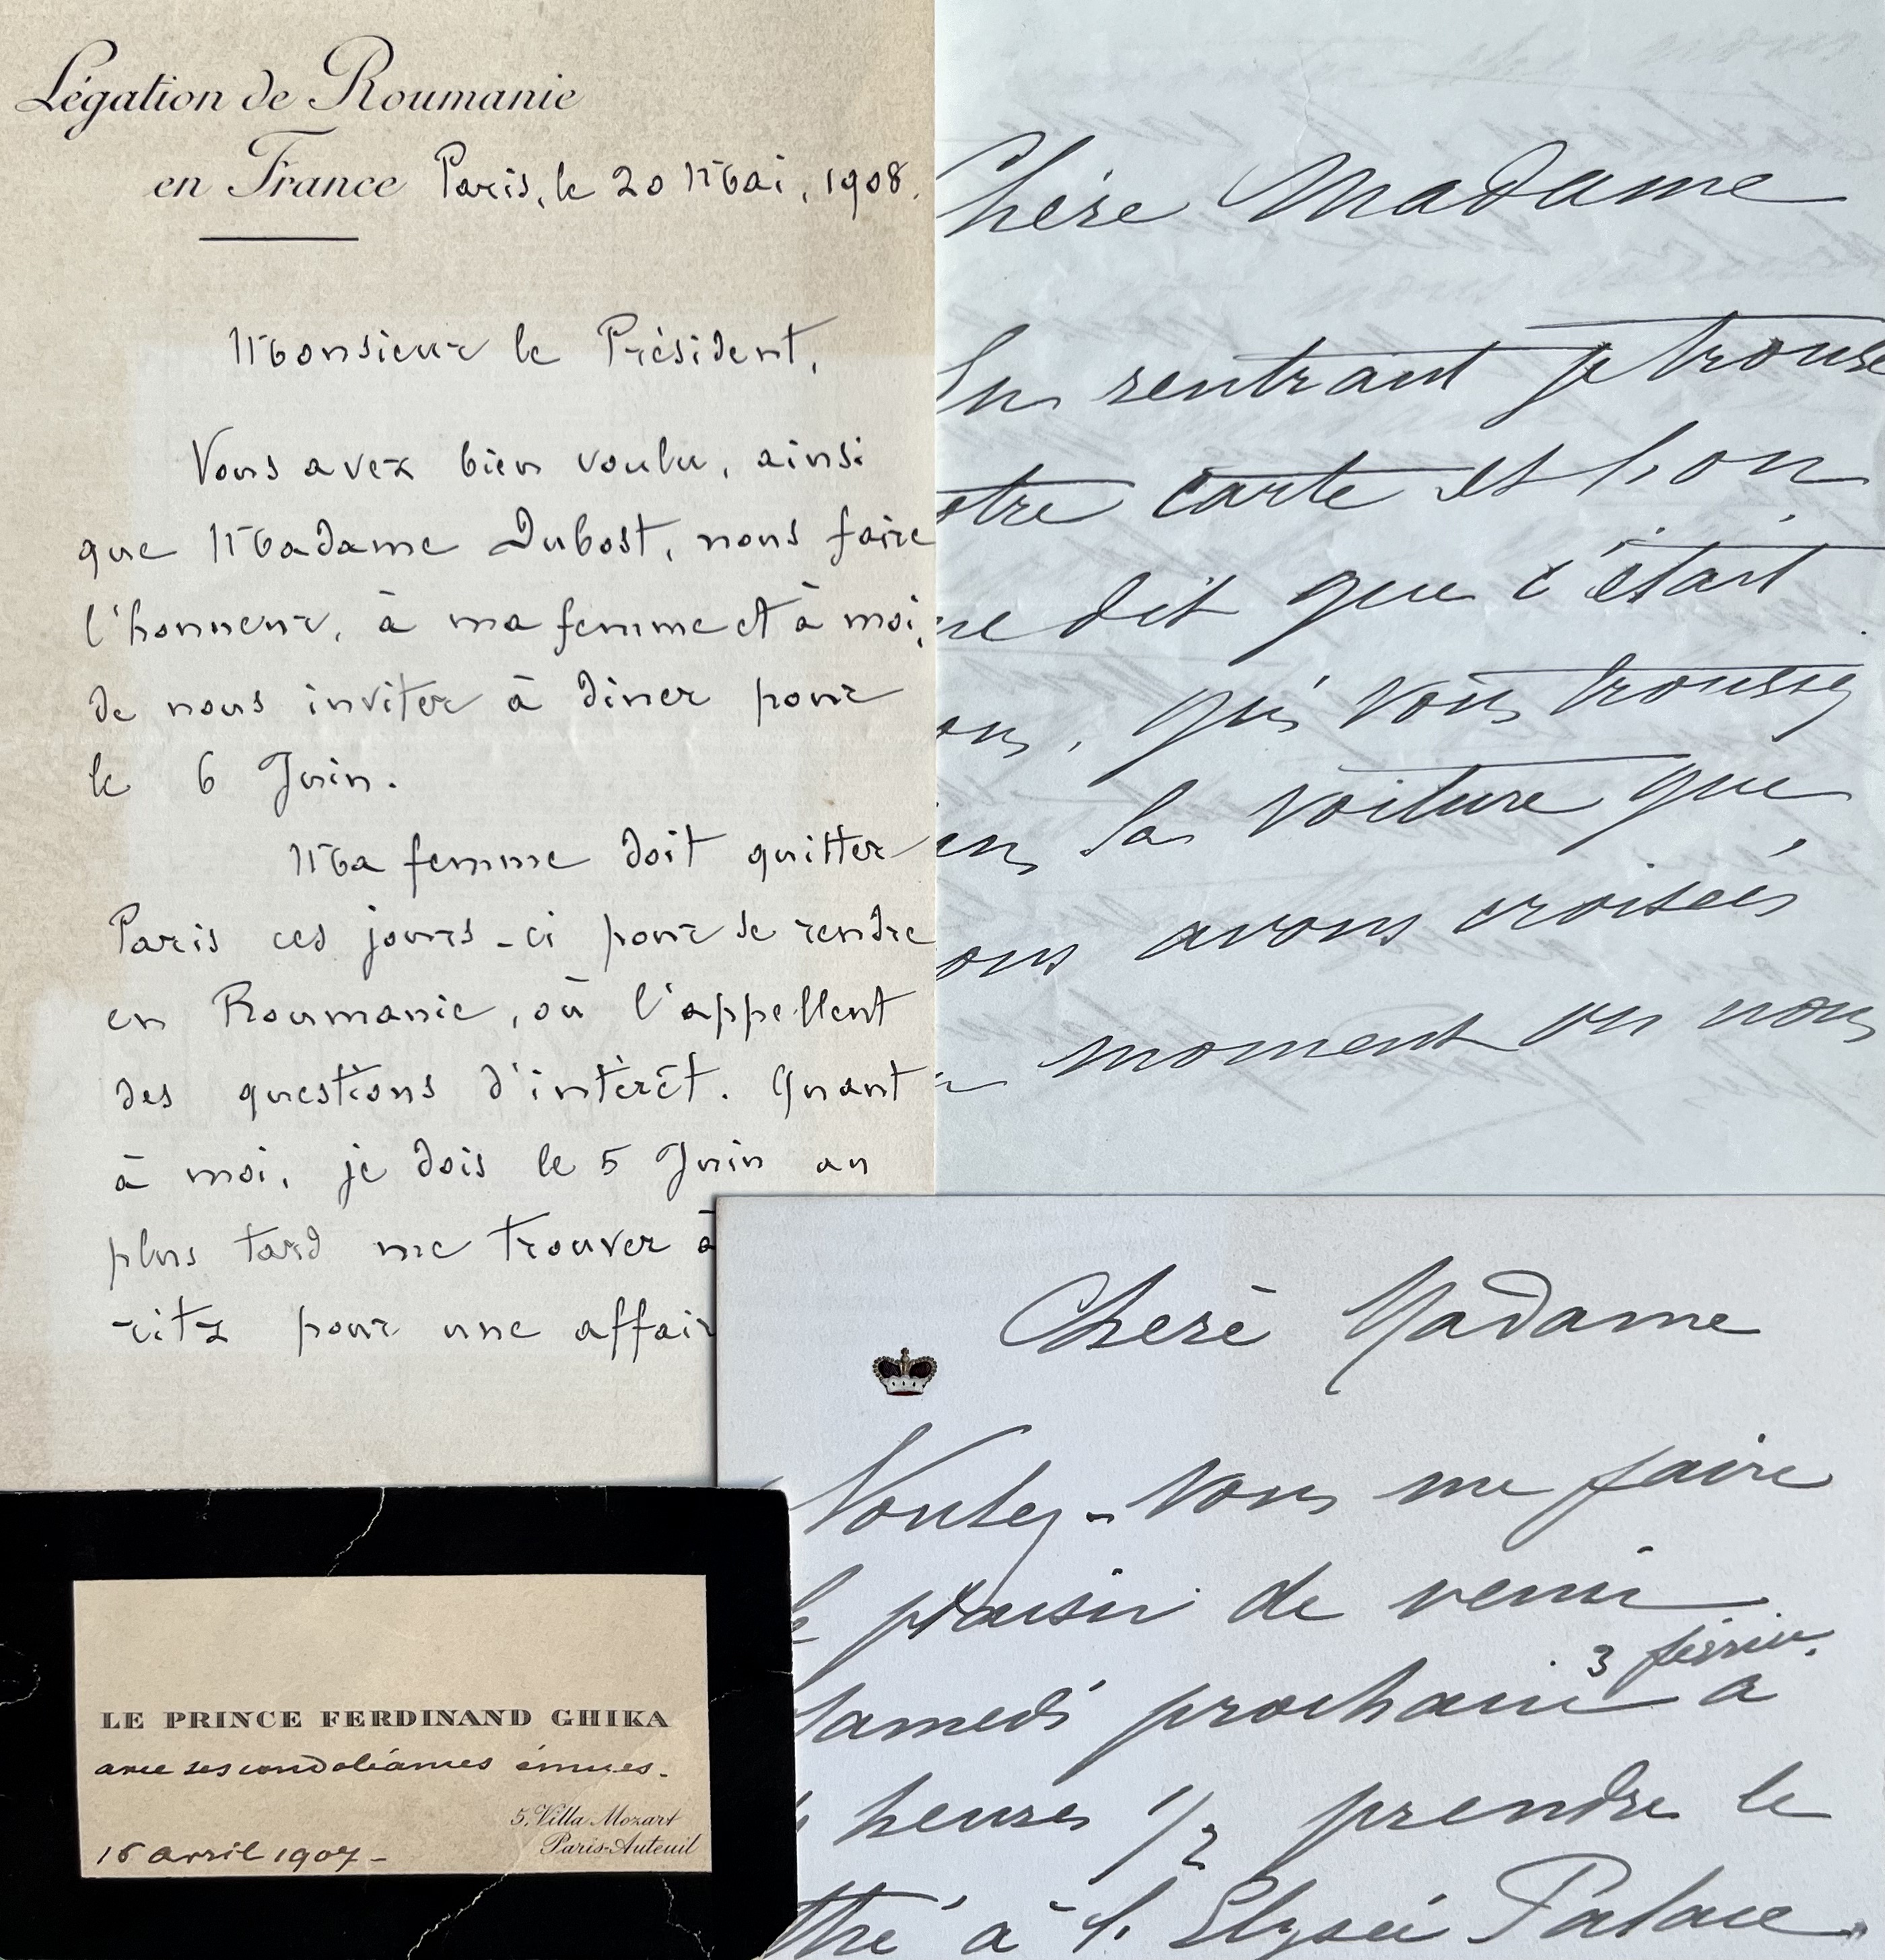 Légation de Roumanie
en France Paris, le 20 Mai, 1908.
Monsieur le Président,
Vous avez bien voulu, ainsi
que Madame Dubost, nous faire
l'honneur, à ma femme et à moi,
de nous inviter à diner pour
le 6 Juin.
Ma femme doit quitter
Paris ces jours-ci pour se rendre
en Roumanie, où l'appellent
des questions d'intérêt. Quant
à moi, je dois le 5 Juin au
plus tard me trouver à
ritz pour une affair
Chère Madame
En rentrant je trouve
otre carte et l'on
me dit que c'était
ous, qui vous trouviez
ans la voiture que
ous avons croisée,
moment où nous
Cherè Madame
Voulez-vous me faire
le plaisir de venir
Samedi prochain 3 février à
heures 1/2 prendre le
thé à l'Elysée Palace
LE PRINCE FERDINAND GHIKA
avec ses condoléances émues.
5, Villa Mozart
Paris-Auteuil
16 avril 1907-